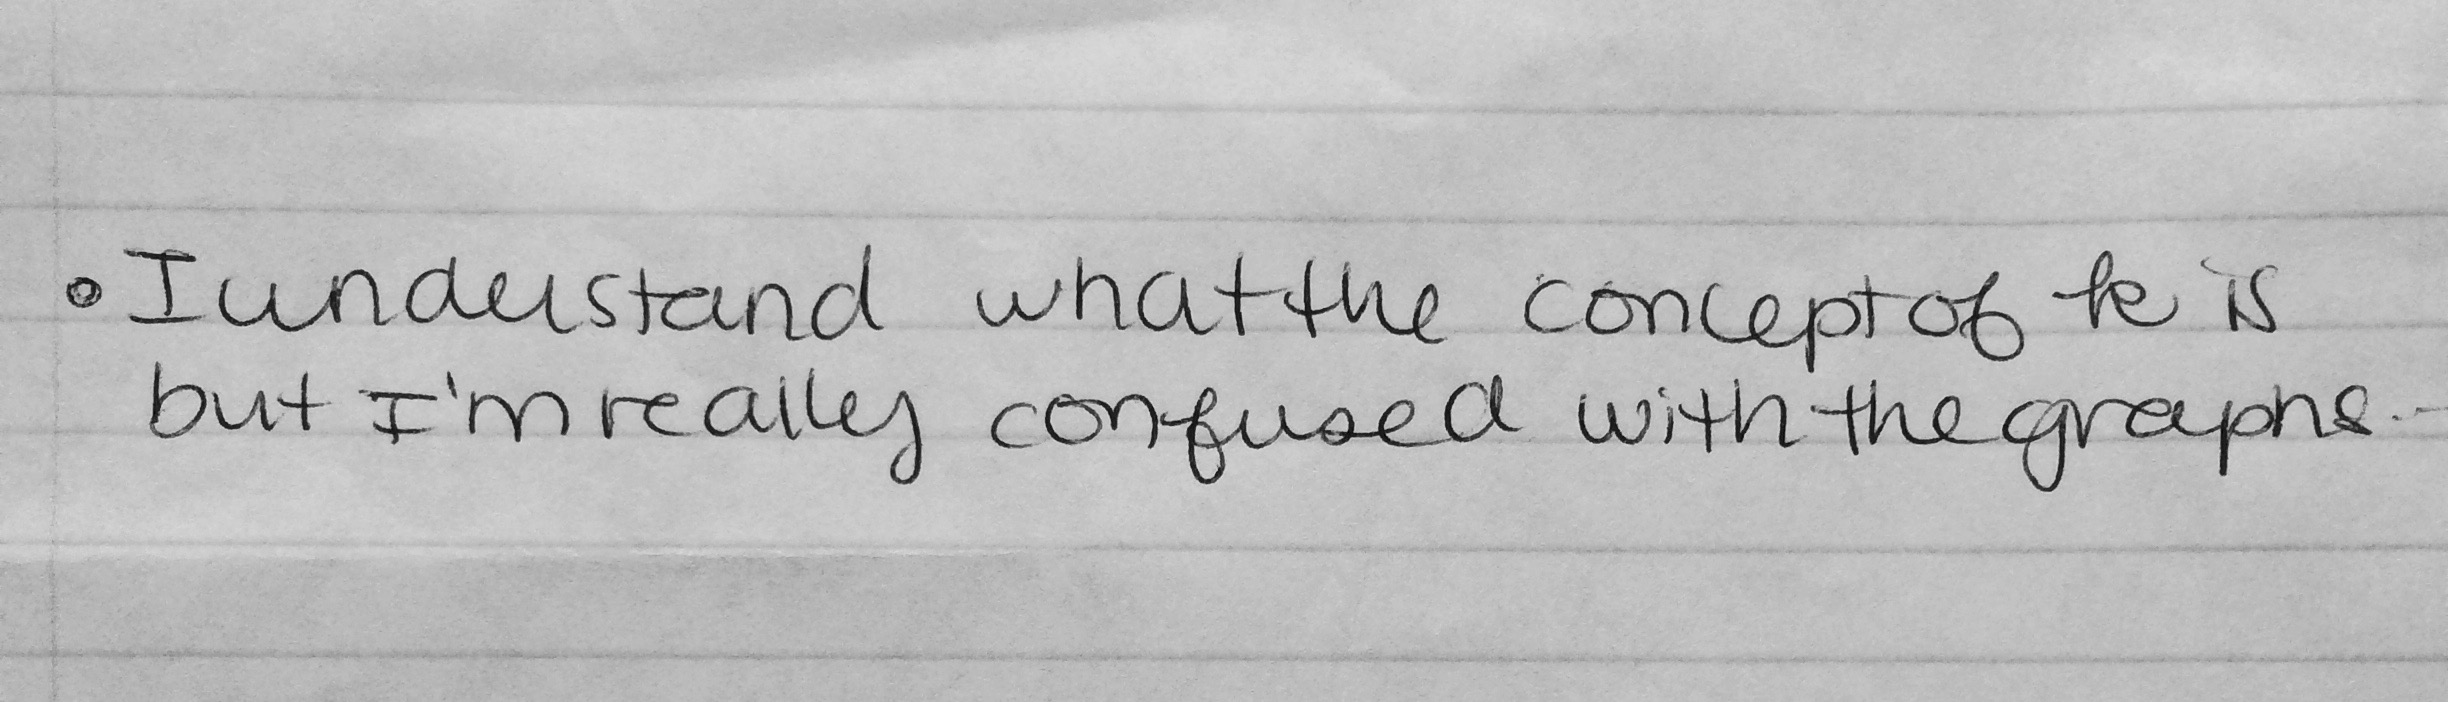 • I understand what the concept of k is
but I'm really confused with the graphs...